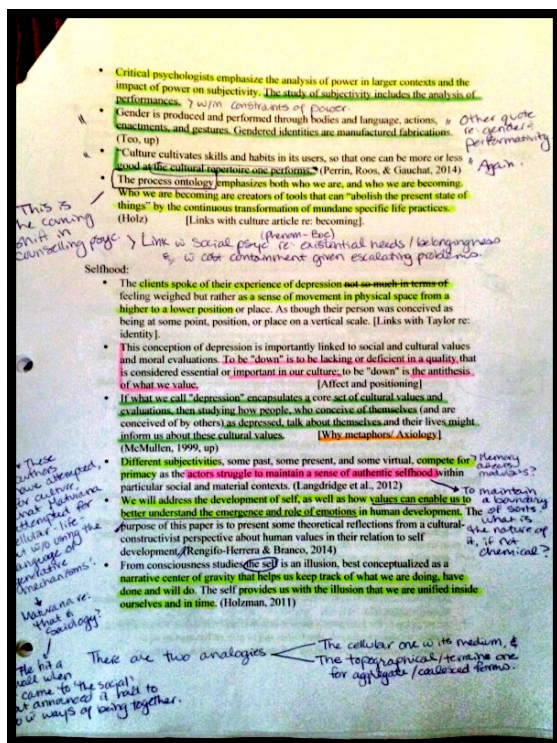 • Critical psychologists emphasize the analysis of power in larger contexts and the
impact of power on subjectivity. The study of subjectivity includes the analysis of
performances. > w/in constraints of power.
• Gender is produced and performed through bodies and language, actions,
enactments, and gestures. Gendered identities are manufactured fabrications.
(Teo, up)
" Other quote
re: gender
performativity
• "Culture cultivates skills and habits in its users, so that one can be more or less
good at the cultural repertoire one performs." (Perrin, Roos, & Gauchat, 2014)
" Again.
• The process ontology emphasizes both who we are, and who we are becoming.
Who we are becoming are creators of tools that can "abolish the present state of
things" by the continuous transformation of mundane specific life practices.
(Holz) [Links with culture article re: becoming].
This is
he coming
shift in
counselling psyc.
> Link w social psyc re: existential needs / belongingness
& w cost containment given escalating problems.
Selfhood:
• The clients spoke of their experience of depression not so much in terms of
feeling weighed but rather as a sense of movement in physical space from a
higher to a lower position or place. As though their person was conceived as
being at some point, position, or place on a vertical scale. [Links with Taylor re:
identity].
• This conception of depression is importantly linked to social and cultural values
and moral evaluations. To be "down" is to be lacking or deficient in a quality that
is considered essential or important in our culture; to be "down" is the antithesis
of what we value. [Affect and positioning]
• If what we call "depression" encapsulates a core set of cultural values and
evaluations, then studying how people, who conceive of themselves (and are
conceived of by others) as depressed, talk about themselves and their lives might
inform us about these cultural values. [Why metaphors/ Axiology]
(McMullen, 1999, up)
• Different subjectivities, some past, some present, and some virtual, compete for
primacy as the actors struggle to maintain a sense of authentic selfhood within
particular social and material contexts. (Langdridge et al., 2012)
? Memory
To maintain
a boundary
of sorts
what is
the nature of
it, if not
chemical?
• We will address the development of self, as well as how values can enable us to
better understand the emergence and role of emotions in human development. The
purpose of this paper is to present some theoretical reflections from a cultural-
constructivist perspective about human values in their relation to self
development. (Rengifo-Herrera & Branco, 2014)
• From consciousness studies, the self is an illusion, best conceptualized as a
narrative center of gravity that helps us keep track of what we are doing, have
done and will do. The self provides us with the illusion that we are unified inside
ourselves and in time. (Holzman, 2011)
* These
authors
have attempted,
for culture,
what Maturana
attempted for
cellular life
but w/o using the
language of
generative
mechanisms.
Maturana re:
that is
Sociology?
He hit a
wall when
came to 'the social'
but announced it had to
do w ways of being together.
There are two analogies
The cellular one w its medium, &
The topographical/terrains one
for aggregate/coalesced forms.